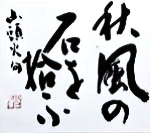 秋風の
石を
拾ふ
山頭火句